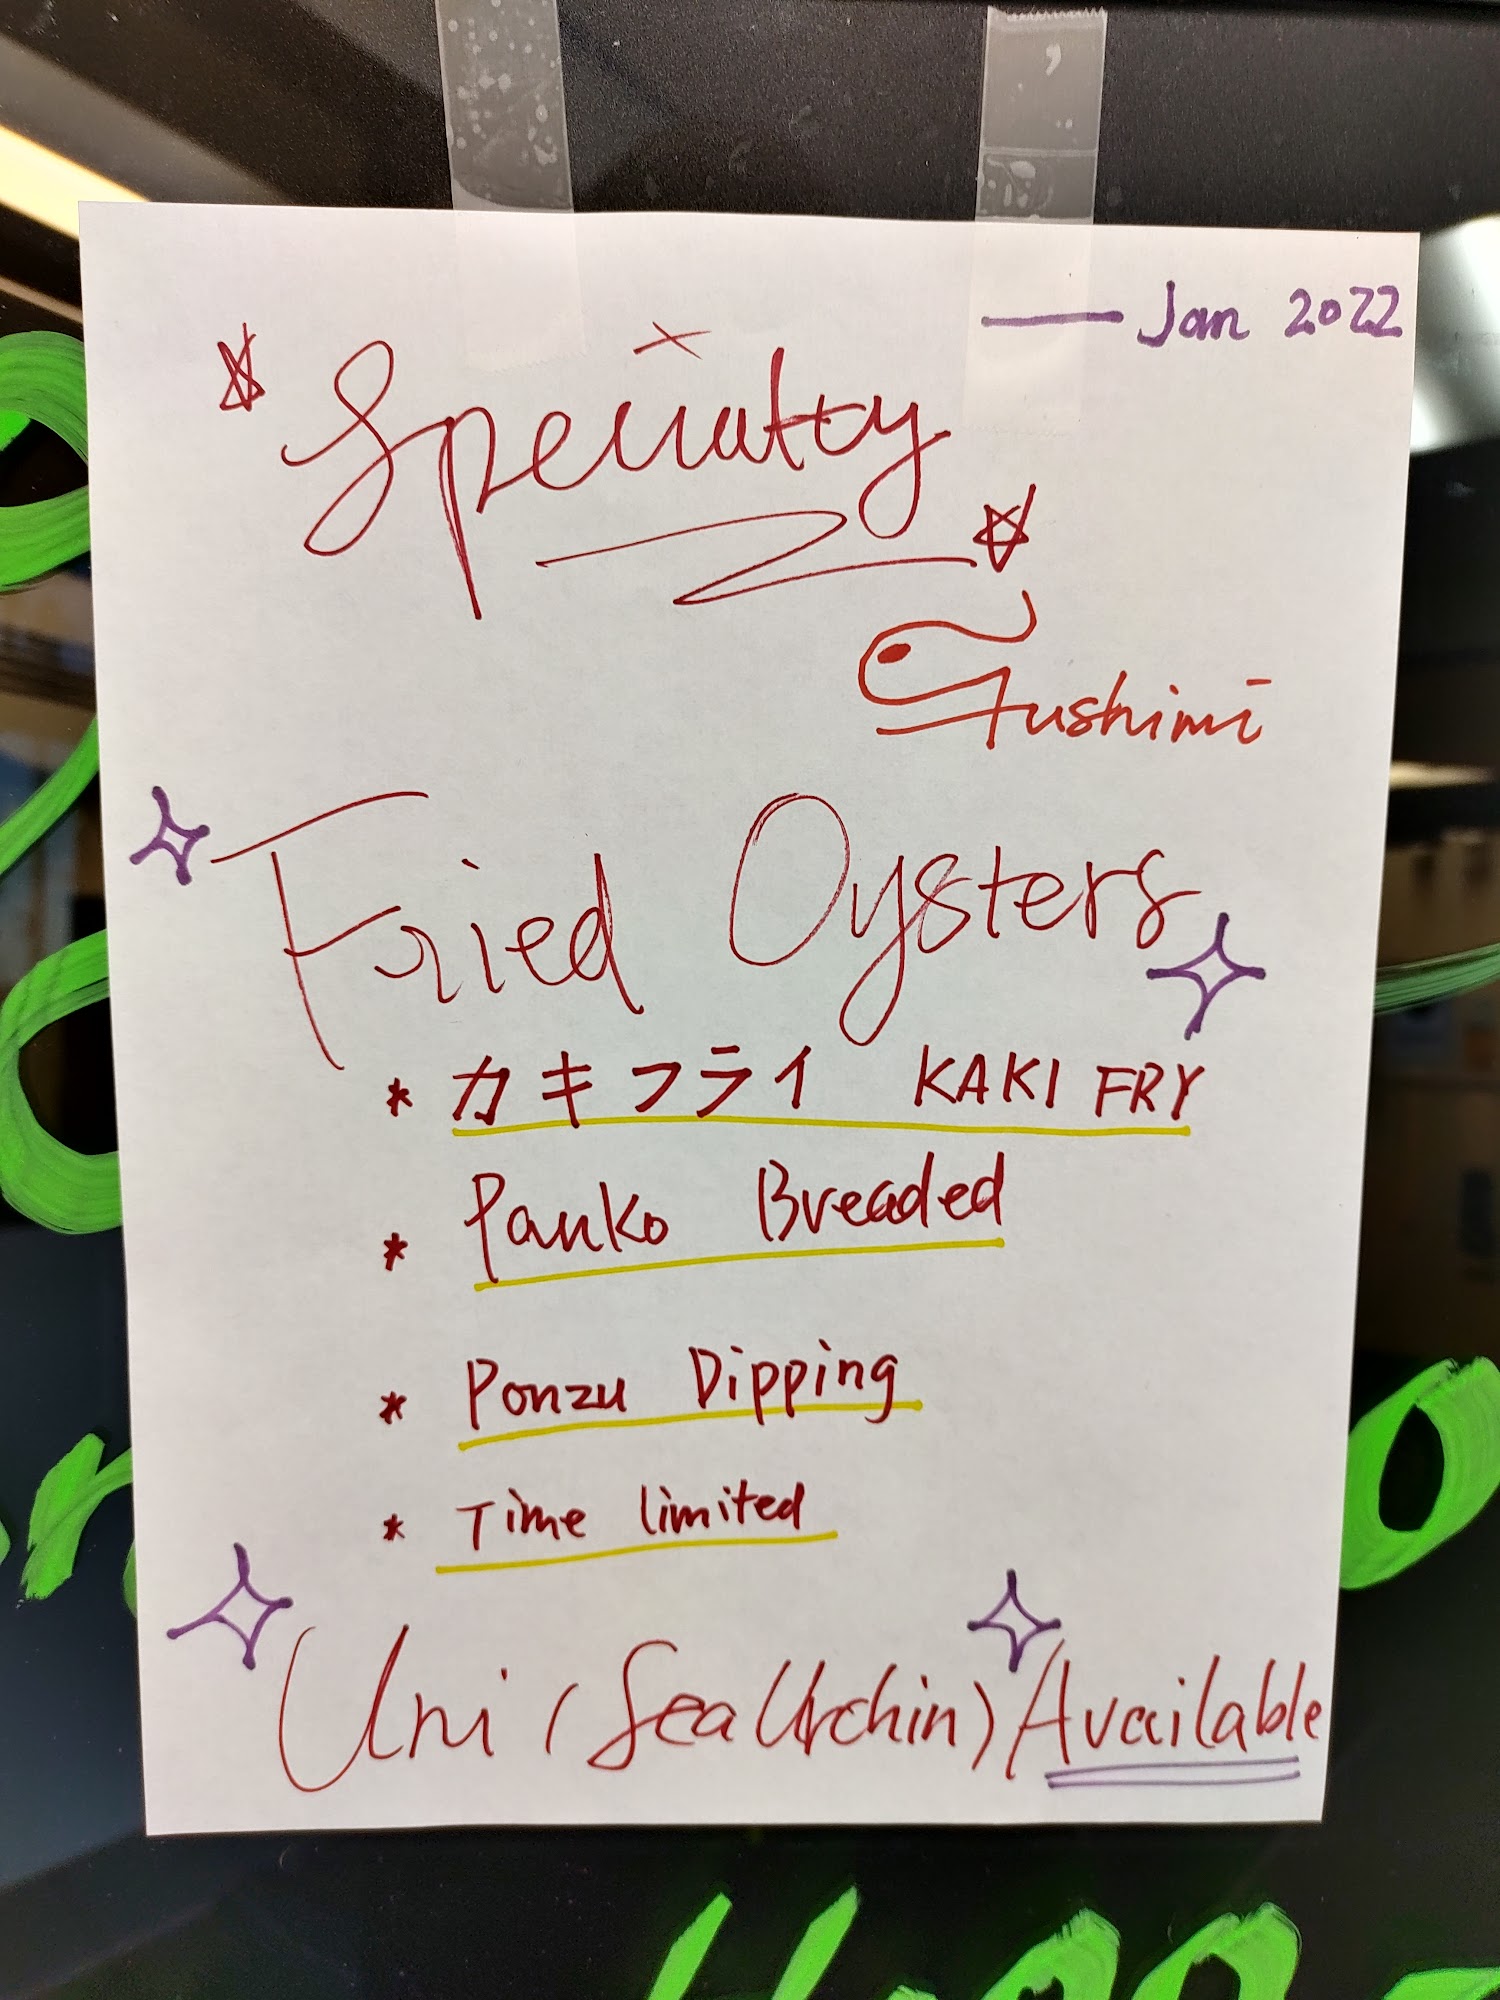 Jan 2022
Specialty
Fushimi
Fried Oysters
* カキフライ KAKI FRY
* Panko Breaded
* Ponzu Dipping
* Time limited
Uni (Sea Urchin) Available